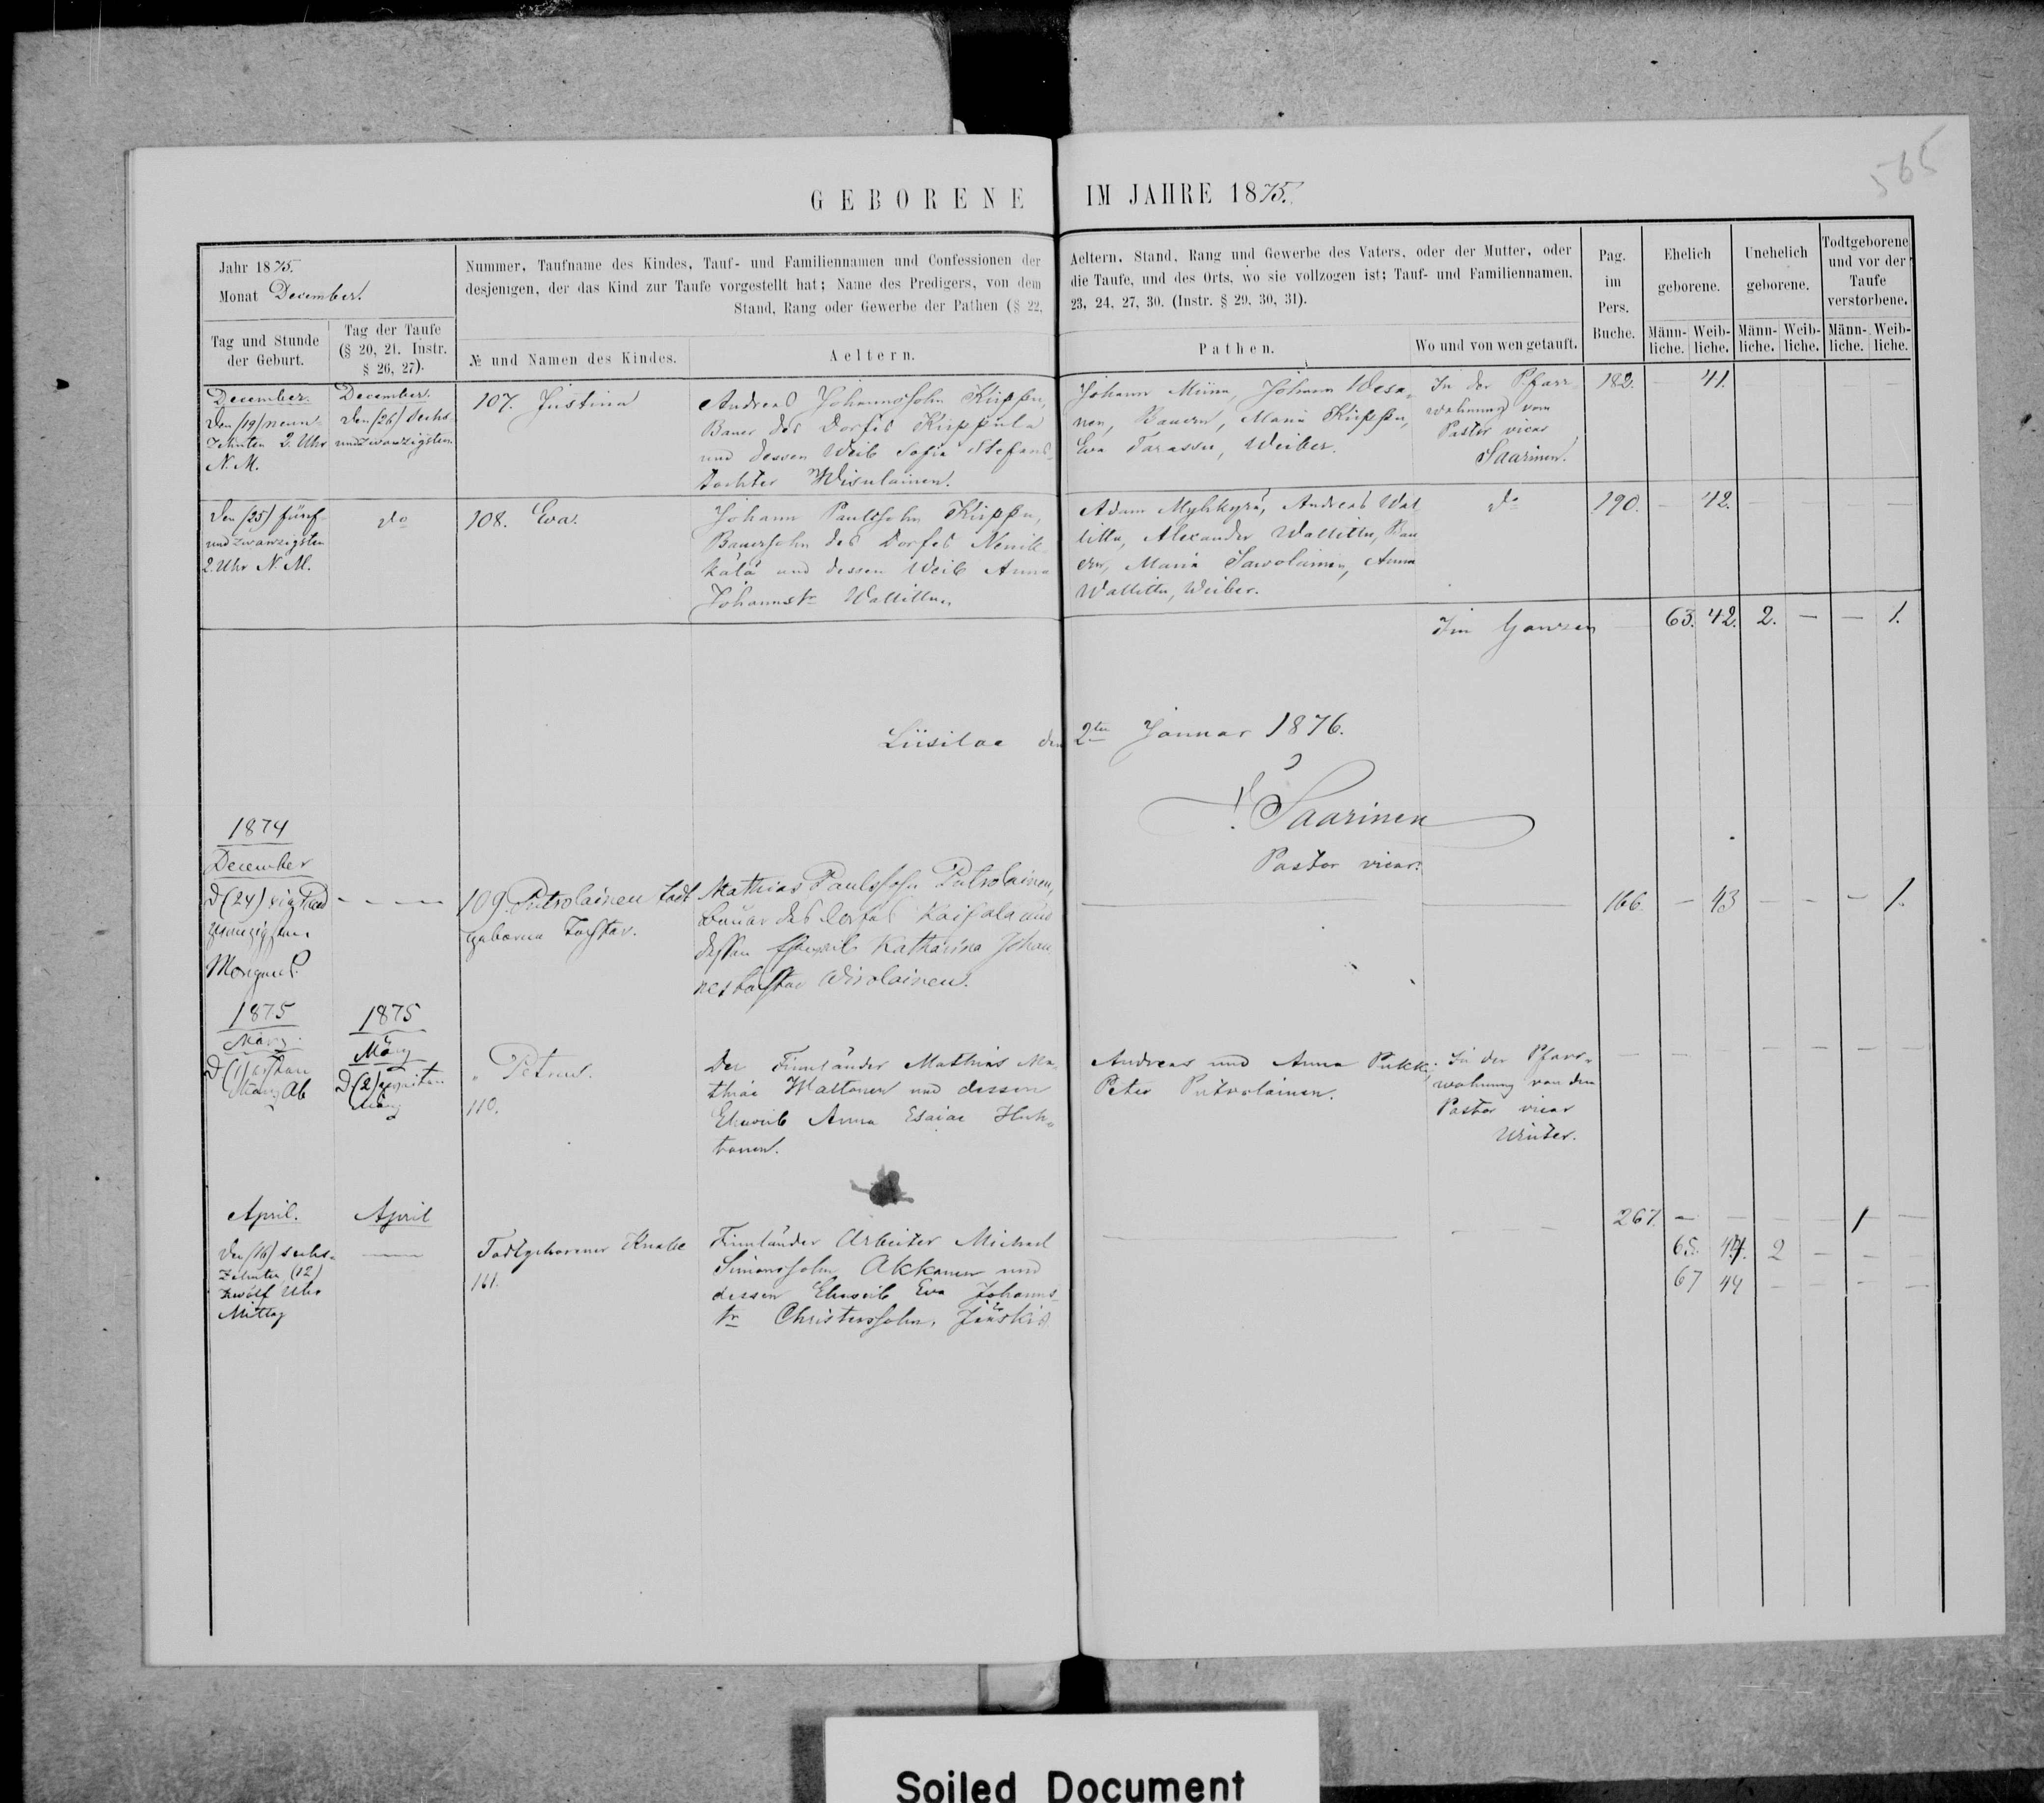 565
GEBORENE IM JAHRE 1875.
Jahr 1875.
Monat December.
Nummer, Taufname des Kindes, Tauf- und Familiennamen und Confessionen der
desjenigen, der das Kind zur Taufe vorgestellt hat; Name des Predigers, von dem
Stand, Rang oder Gewerbe der Pathen (§ 22,
Aeltern, Stand, Rang und Gewerbe des Vaters, oder der Mutter, oder
die Taufe, und des Orts, wo sie vollzogen ist; Tauf- und Familiennamen,
23, 24, 27, 30. (Instr. § 29, 30, 31).
Pag.
im
Pers.
Buche.
Ehelich
geborene.
Unehelich
geborene.
Todtgeborene
und vor der
Taufe
verstorbene.
Tag und Stunde
der Geburt.
Tag der Taufe
(§ 20, 21. Instr.
§ 26, 27).
№ und Namen des Kindes.
Aeltern.
Pathen.
Wo und von wen getauft.
Männ-liche. Weib-liche. Männ-liche. Weib-liche. Männ-liche. Weib-liche.
December.
Den (19) neun-
zehnten 2. Uhr
N. M.
December.
Den (26) sechs-
undzwanzigsten
107. Justina
Andreas Johannssohn Kirppu,
Bauer des Dorfes Kirppula
und dessen Weib Sofia Stefans-
tochter Wisulainen.
Johann Miina, Johann Wesa-
nen, Bauern, Maria Kirppu,
Eva Tarassu, Weiber.
In der Pfarr-
wohnung vom
Pastor vicar
Saarinen.
182. — 41.
Den (25) fünf-
undzwanzigsten
2. Uhr N. M.
do
108. Eva.
Johann Paulssohn Kirppu,
Bauersohn des Dorfes Nenik-
kälä und dessen Weib Anna
Johannstr Wallittu.
Adam Myhkyrä, Andreas Wal
littu, Alexander Wallittu, Bau
ern, Maria Sawolainen, Anna
Wallittu, Weiber.
do
190. — 42.
Im Ganzen — 63. 42. 2. — — 1.
Liisilae den 2ten Januar 1876.
Saarinen
Pastor vicar.
1874
December
D (24) vier und
zwanzigsten
Morgens.
109. Putrolainen todt
geborne Tochter.
Mathias Paulssohn Putrolainen,
Bauer des Dorfes Kaipala und
dessen Eheweib Katharina Johan
nestochter Wirolainen.
166. — 43 — — — 1.
1875
März.
D (1) ersten
März Ab
1875
März
D (2) zweiten
März
Petrus.
110.
Der Finnländer Mathias Ma-
thiae Waltonen und dessen
Eheweib Anna Esaiae Huh-
tonen.
Andreas und Anna Pukki,
Peter Putrolainen.
In der Pfarr-
wohnung von dem
Pastor vicar
Winter.
April.
den (16) sechs-
zehnten (12)
zwölf Uhr
Mittag
April
Todtgeborener Knabe
111.
Finnländer Arbeiter Michael
Simonssohn Akkanen und
dessen Eheweib Eva Johanns-
tr Christerssohn, Jääskis
267. — — — — 1 —
65. 44. 2 — — —
67 44 — — — —
Soiled Document